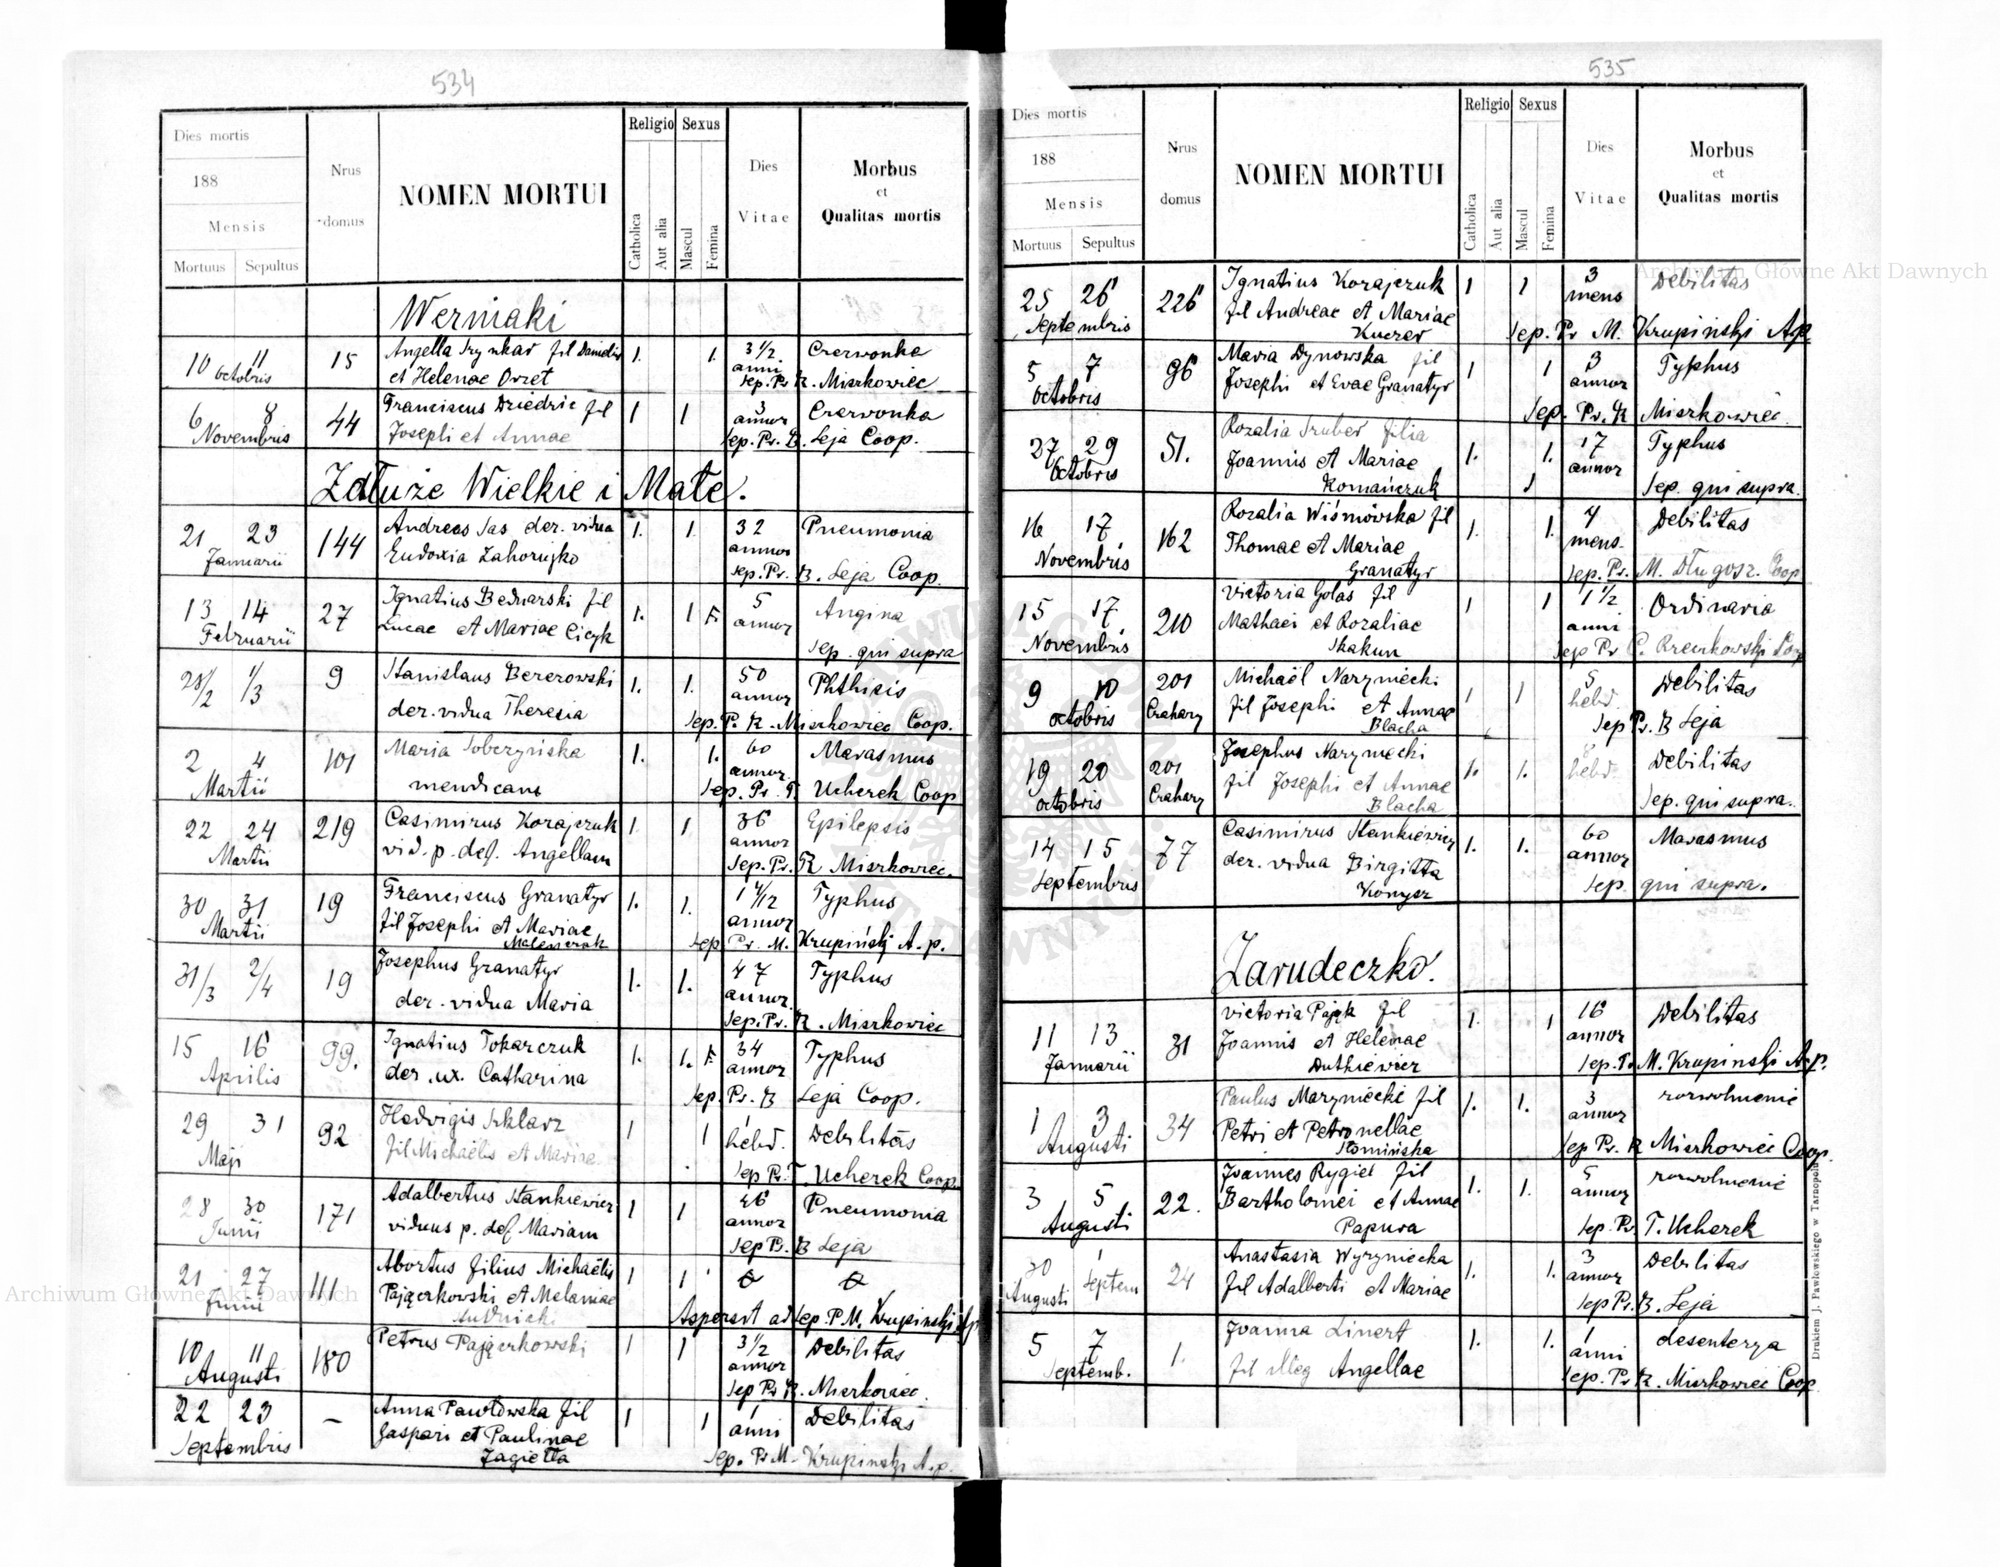 534
Dies mortis
188
Mensis
Mortuus Sepultus
Nrus domus
NOMEN MORTUI
Religio
Catholica
Aut alia
Sexus
Mascul
Femina
Dies Vitae
Morbus
et
Qualitas mortis
Werniaki
10 11 octobris 15 Angella fil Danielis 1. 1. 3 1/2 anni Czerwonka
et Helenae Orzet Sep. Pr. R. Miszkowiec
6 8 Novembris 44 Franciscus Dziedzic fil 1 1 3 annor Czerwonka
Josephi et Annae Sep. Pr. B. Leja Coop.
Zdłuże Wielkie i Małe.
21 23 Januarii 144 Andreas Sas der. vidua 1. 1. 32 annor Pneumonia
Eudoxia Zahorujko Sep. Pr. B. Leja Coop.
13 14 Februarii 27 Ignatius Bednarski fil 1. 1 F 5 annor Angina
Lucae et Mariae Sep. qui supra
28/2 1/3 9 Stanislaus Berezowski 1. 1. 50 annor Phthisis
der. vidua Theresia Sep. P. R. Miszkowiec Coop.
2 4 Martii 101 Maria Soberzyńska 1. 1. 60 annor Marasmus
mendicans Sep. Pr. T. Ucherek Coop
22 24 Martii 219 Casimirus Korajczuk 1 1 36 annor Epilepsis
vid. p. def. Angellam Sep. Pr. R Miszkowiec.
30 31 Martii 19 Franciscus Granatyr 1. 1. annor Typhus
fil Josephi et Mariae Sep Pr. M. Krupiński A. p.
31/3 2/4 19 Josephus Granatyr 1. 1. 47 annor Typhus
der. vidua Maria Sep. Pr. R. Miszkowiec
15 16 Aprilis 99. Ignatius Tokarczuk 1. 1. F 34 annor Typhus
der. ux. Catharina Sep. Pr. B Leja Coop.
29 31 Maji 92 Hedvigis Szklarz 1 1 1 hebd. Debilitas
fil Michaëlis et Mariae Sep Pr. T. Ucherek Coop.
28 30 Junii 171 Adalbertus Stankiewicz 1 1 46 annor Pneumonia
viduus p. def Mariam Sep Pr. B Leja
21 27 Junii 111 Abortus filius Michaëlis 1 1
Pajączkowski et Melaniae
Aspersit ad Sep. P. M. Krupinski Ap
10 11 Augusti 180 Petrus Pajączkowski 1 1 3 1/2 annor Debilitas
Sep Pr R. Miszkowiec.
22 23 Septembris – Anna Pawłowska fil 1 1 1 anni Debilitas
Gaspari et Paulinae
Jagiełła Sep. Pr M. Krupinski A. p.
535
Dies mortis
188
Mensis
Mortuus Sepultus
Nrus domus
NOMEN MORTUI
Religio
Catholica
Aut alia
Sexus
Mascul
Femina
Dies Vitae
Morbus
et
Qualitas mortis
25 26 Septembris 226 Ignatius Korajczuk 1 1 3 mens Debilitas
fil Andreae et Mariae
Kuczer Sep. Pr M. Krupiński Ap.
5 7 octobris 96 Maria Dynowska fil 1 1 3 annor Typhus
Josephi et Evae Granatyr Sep. Pr. R Miszkowiec.
27 29 Octobris 51. Rozalia Gruber filia 1. 1. 17 annor Typhus
Joannis et Mariae
Romańczuk Sep. qui supra.
16 17 Novembris 162 Rozalia Wiśniowska fil 1. 1. 4 mens. Debilitas
Thomae et Mariae
Granatyr Sep. Pr. M. Długosz. Coop
15 17 Novembris 210 Victoria Golas fil 1 1 1 1/2 anni Ordinaria
Mathaei et Rozaliae
Skakun Sep Pr
9 10 octobris 201 Czahary Michaël Narzyniecki 1 1 5 hebd. Debilitas
fil Josephi et Annae
Blacha Sep Pr. B Leja
19 20 octobris 201 Czahary Josephus Narzyniecki 1. 1. 8 hebd. Debilitas
fil Josephi et Annae
Blacha Sep. qui supra.
14 15 Septembris 77 Casimirus Stankiewicz 1. 1. 60 annor Marasmus
der. vidua Birgitta
Konysz Sep. qui supra.
Zarudeczko.
11 13 Januarii 31 Victoria Pająk fil 1. 1 16 annor Debilitas
Joannis et Helenae
Dutkiewicz Sep. Pr. M. Krupinski A. p.
1 3 Augusti 34 Paulus Marzyniecki fil 1. 1. 3 annor rozwolnienie
Petri et Petronellae
Słomińska Sep Pr. R Miszkowiec Coop.
3 5 Augusti 22. Joannes Rygiel fil 1. 1. 5 annor rozwolnienie
Bartholomei et Annae
Papura Sep. Pr. T. Ucherek
30 Augusti 1 Septem 24 Anastasia Wyrzyniecka 1. 1. 3 annor Debilitas
fil Adalberti et Mariae Sep Pr. B. Leja
5 7 Septemb. 1. Joanna Linert 1. 1. 1 anni desenterya
fil illeg Angellae Sep. Pr R. Miszkowiec Coop
Drukiem J. Pawłowskiego w Tarnopolu
Archiwum Główne Akt Dawnych
Archiwum Główne Akt Dawnych